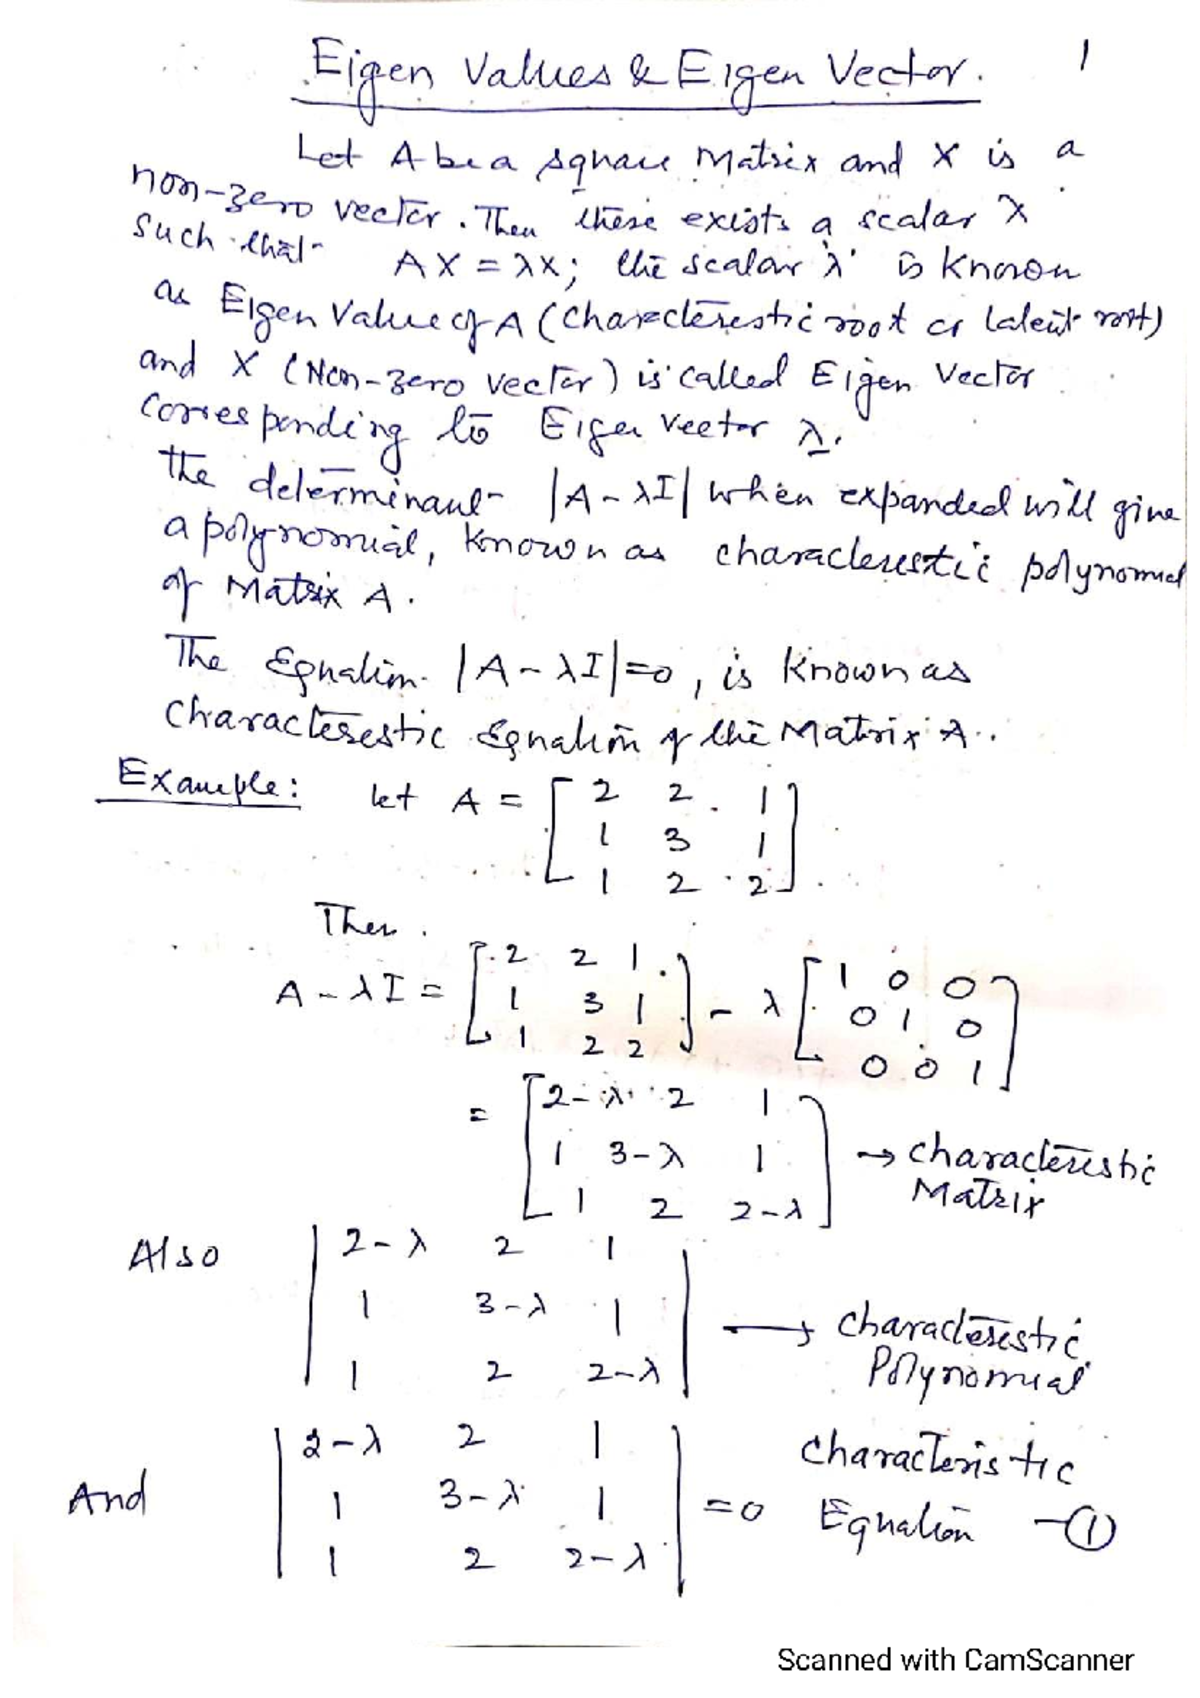 Eigen Values & Eigen Vector. 1
Let A be a square Matrix and X is a
non-zero vector. Then there exists a scalar λ
such that AX = λX; the scalar 'λ' is known
as Eigen Value of A (Characterestic root or latent root)
and X (Non-zero vector) is called Eigen Vector
Corresponding to Eigen vector λ.
The determinant |A - λI| when expanded will give
a polynomial, known as characterestic polynomial
of Matrix A.
The Equation |A - λI| = 0, is known as
Characterestic Equation of the Matrix A.
Example: let A = [ 2 2 1
1 3 1
1 2 2 ]
Then
A - λI = [ 2 2 1
1 3 1
1 2 2 ] - λ [ 1 0 0
0 1 0
0 0 1 ]
= [ 2-λ 2 1
1 3-λ 1
1 2 2-λ ] → Characterestic
Matrix
Also | 2-λ 2 1
1 3-λ 1
1 2 2-λ | → Characterestic
Polynomial
And | 2-λ 2 1
1 3-λ 1
1 2 2-λ | = 0 Characteristic
Equation -①
Scanned with CamScanner